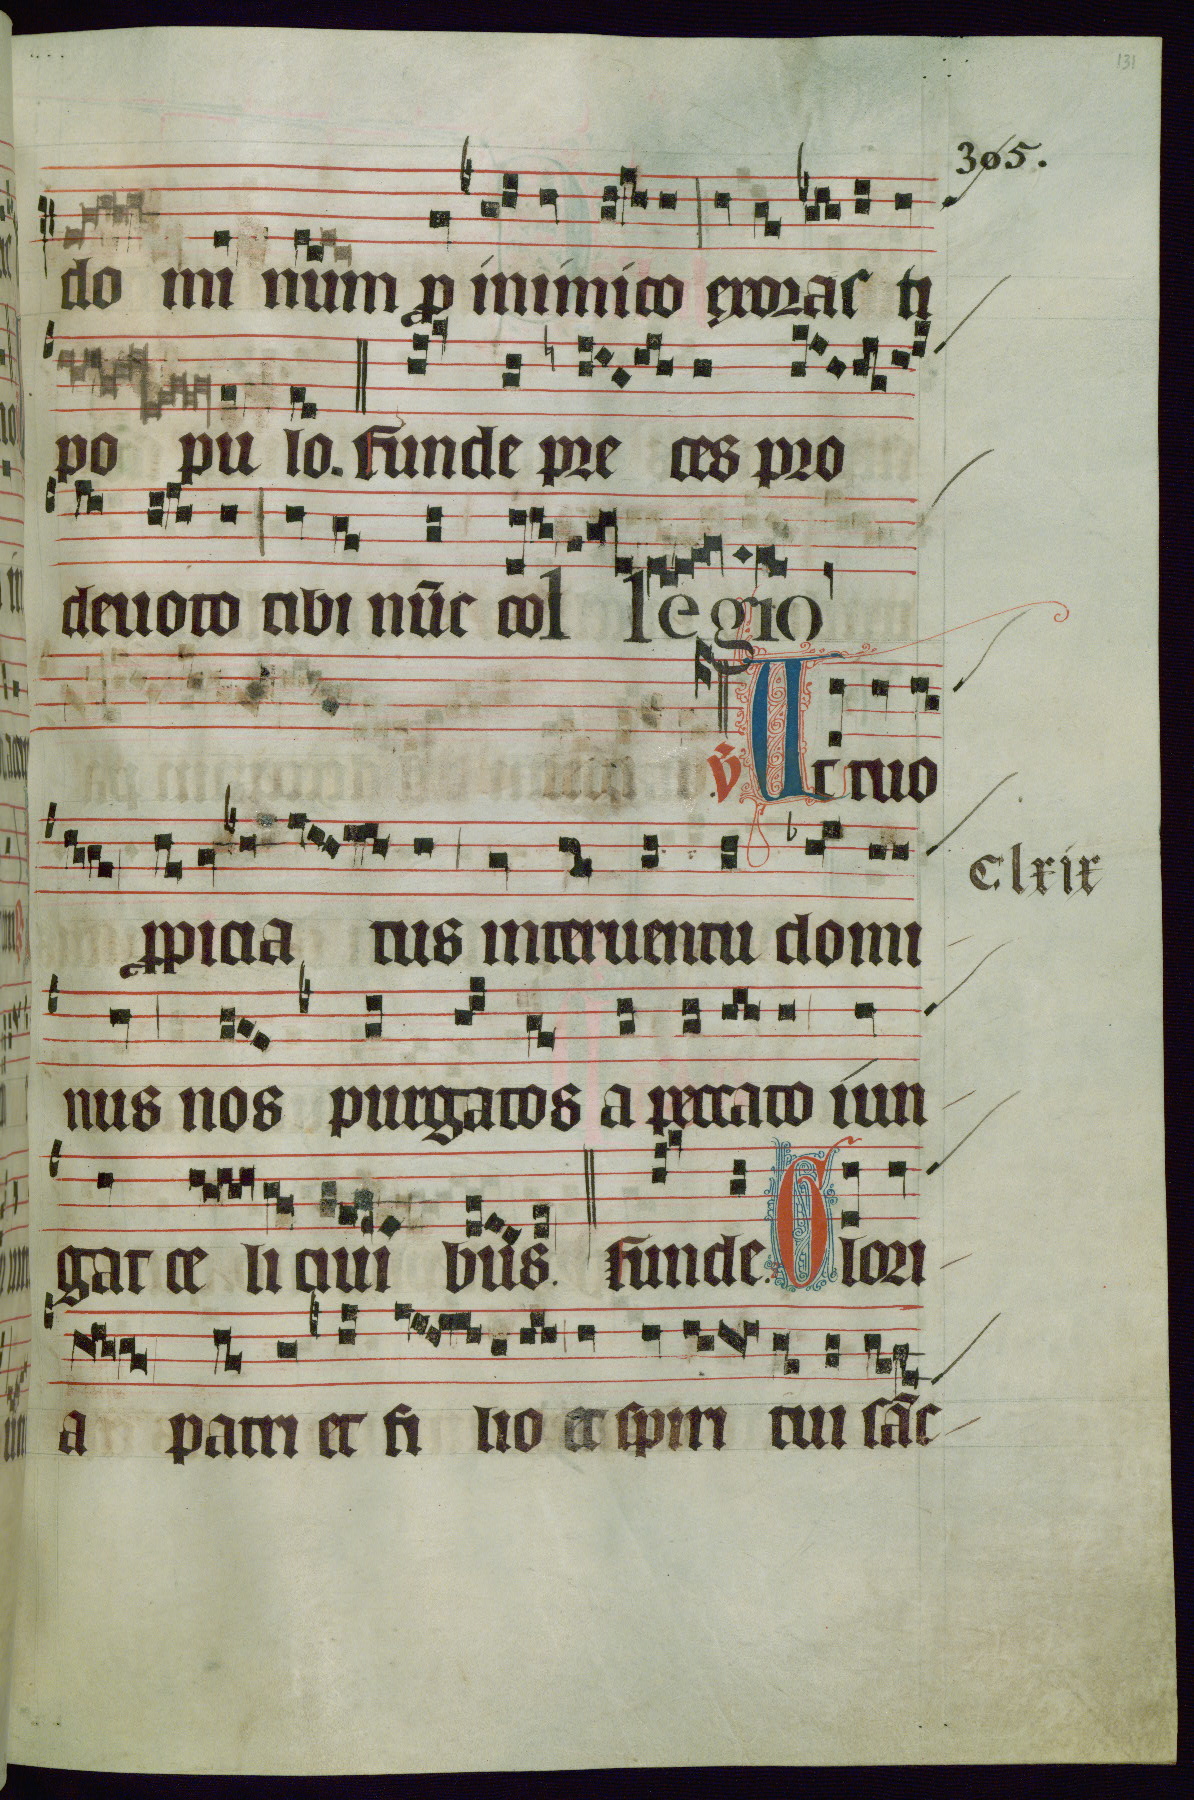 131
305.
do mi num ꝓ inimico exoras ti
po pu lo. funde pre ces pro
deuoto tibi nūc col legio
v̄ Ut tuo
Clxix
ꝓpicia tus interuentu domi
nus nos purgatos a peccato iun
gat ce li ciui bus. funde. Glori
a patri et fi lio et spiri tui sāc